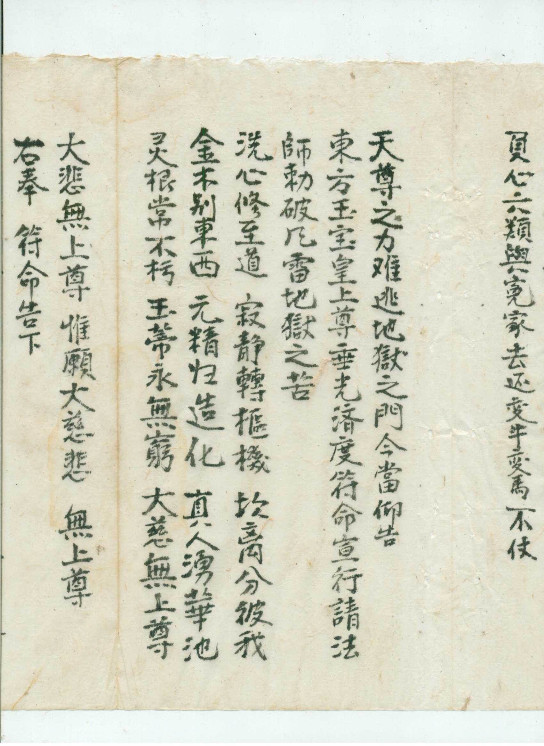 負心六類與冤家去还变牛変馬 不仗
天尊之力难逃地獄之門今當仰告
東方玉宝皇上尊垂光濟度符命宣行請法
師勅破風雷地獄之苦
洗心修至道 寂静轉樞機 坎离分彼我
金木别東西 元精归造化 真人湧華池
灵根常不朽 玉蒂永無窮 大慈無上尊
大悲無上尊 惟願大慈悲 無上尊
右奉 符命告下